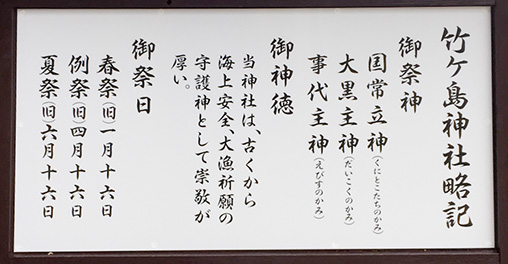 竹ケ島神社略記
御祭神
国常立神(くにとこたちのかみ)
大黒主神(だいこくのかみ)
事代主神(えびすのかみ)
御神徳
当神社は、古くから
海上安全、大漁祈願の
守護神として崇敬が
厚い。
御祭日
春祭(旧)一月十六日
例祭(旧)四月十六日
夏祭(旧)六月十六日